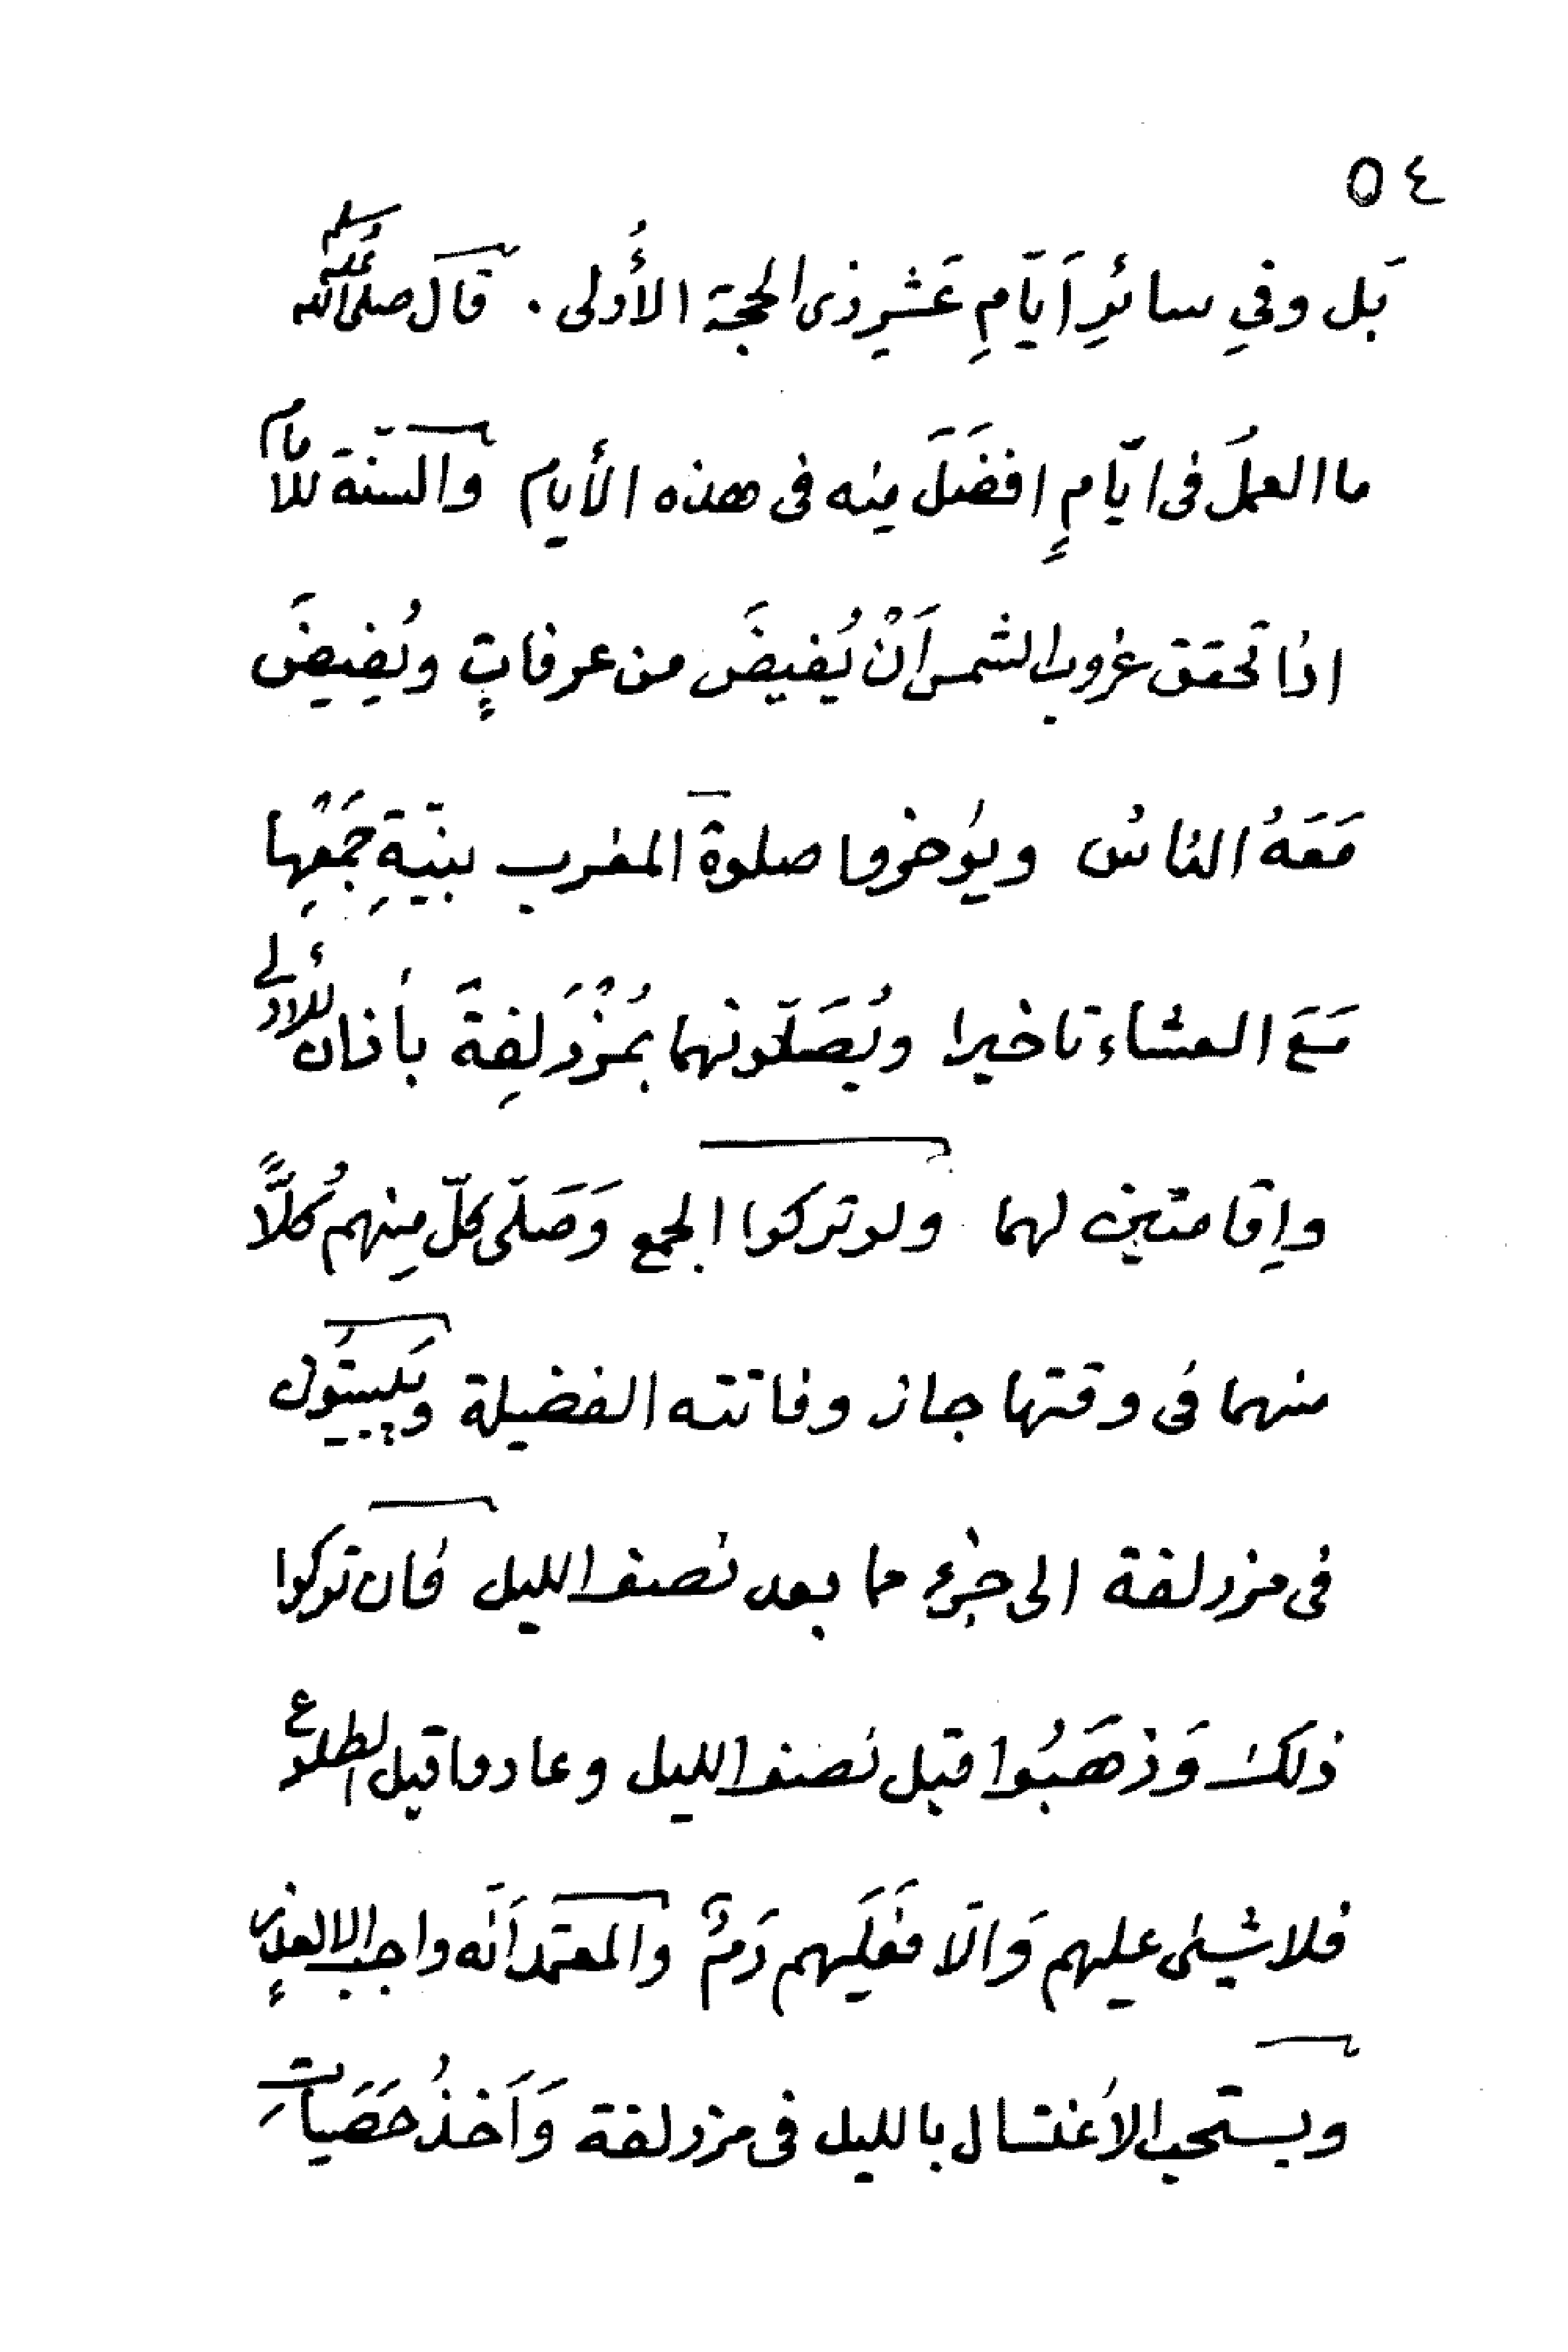 ٥٤
بَل وفي سائرِ اَيّامِ عَشْرِ ذى الحجة الأُولى . قالَ صلى الله عليه وسلم
ما العملُ فى ايّامٍ افضَلَ مِنه فى هذه الأيام والسنّة للامام
اذا تحقق غروب الشمس اَنْ يُفيضَ من عرفاتٍ ويُفِيضَ
مَعَهُ الناسُ ويؤخروا صلوة المغرب بنيّةِ جَمْعِها
مَعَ العشاء تاخيرا ويُصَلّونهما بمُزْدَلِفةَ بأذان للأولى
وإقامتين لهما ولو تركوا الجمع وَصَلّى كلّ مِنهم كُلاًّ
منهما فى وقتها جاز وفاتته الفضيلة ويَبيتُون
فى مزدلفة الى جزء مما بعد نصف الليل فان تركوا
ذلك وَذهَبُوا قبل نصف الليل وعادوا قبل الطلوع
فلا شيئى عليهم وَالّا فعَلَيهم دَمٌ والمعتمد اَنّه واجب الا لعذرٍ
ويستحب الاغتسال بالليل فى مزدلفة وَاَخذُ حَصَياتِ